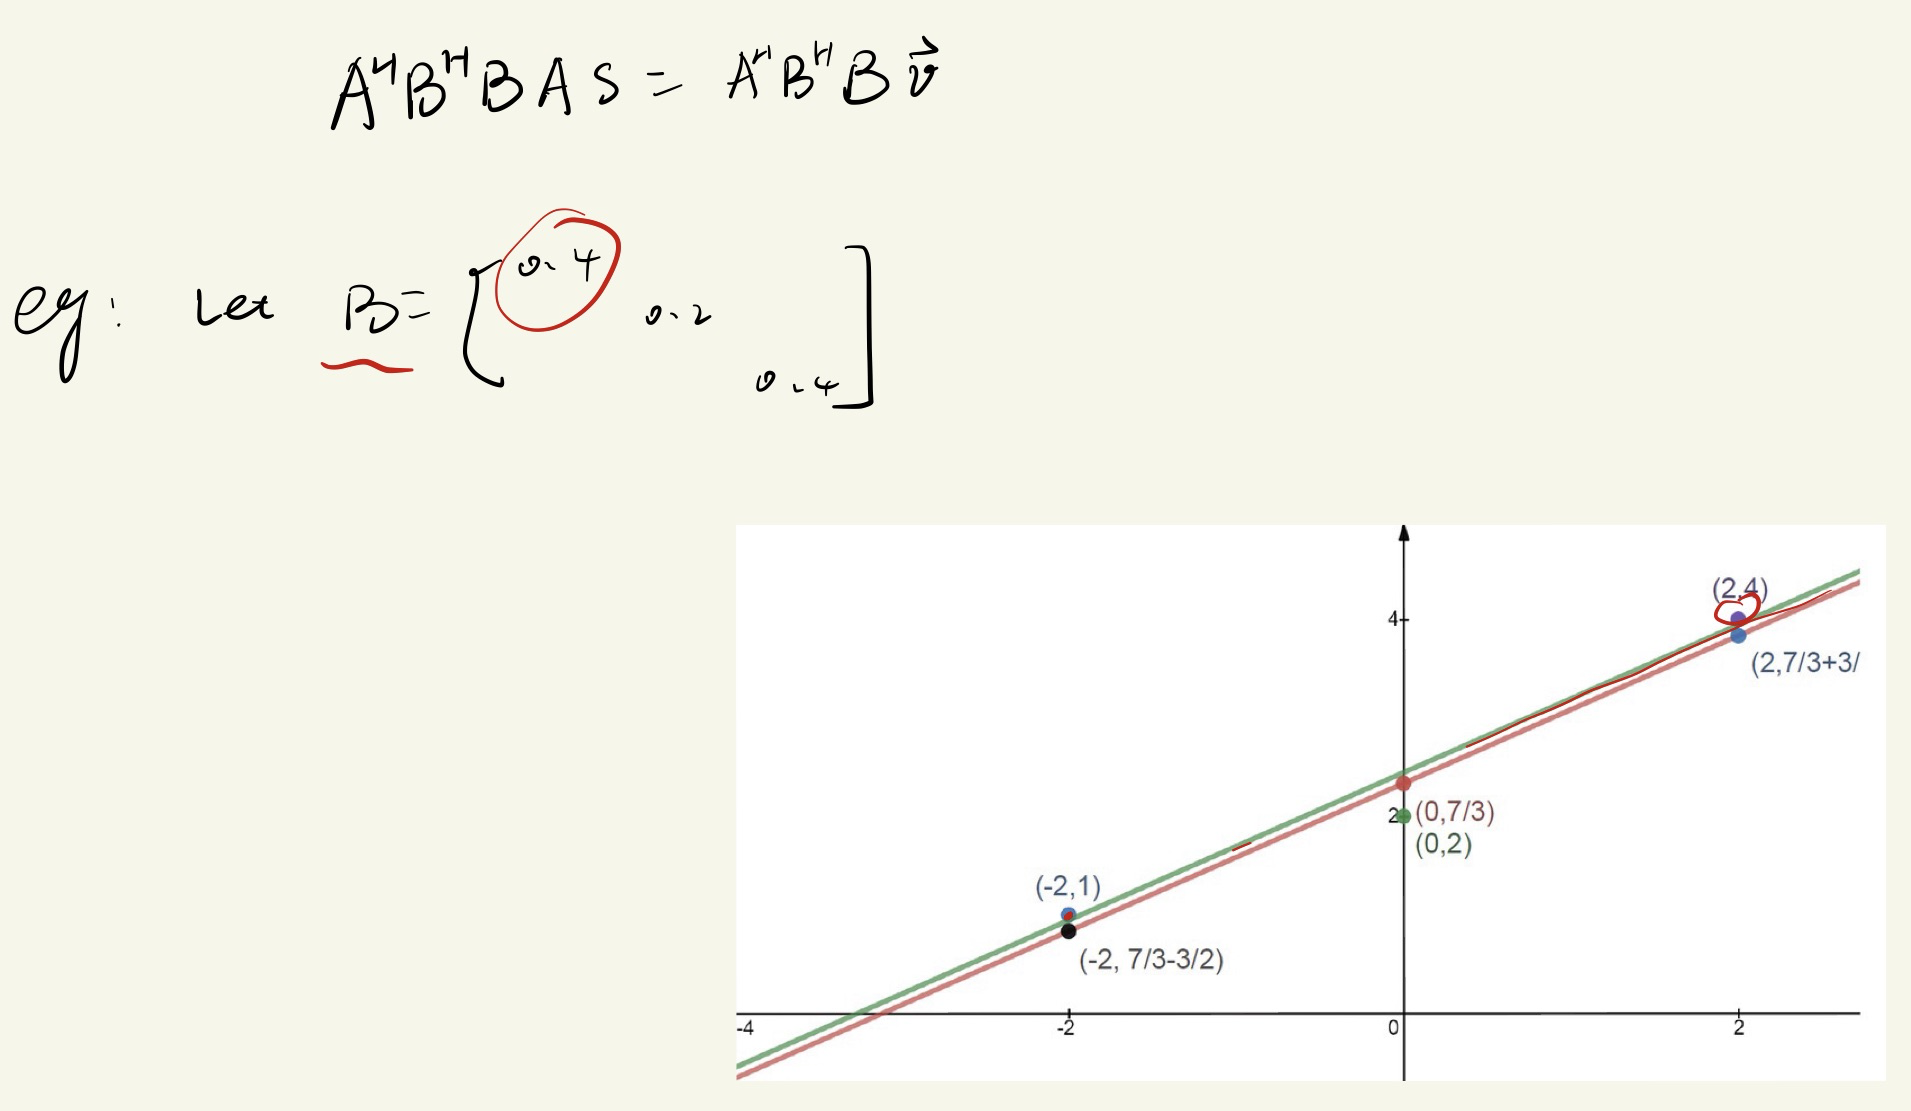 A^H B^H B A S = A^H B^H B v⃗
0.4
eg: Let B = [ 0.2 ]
0.4
(2,4)
4
(2,7/3+3/
2 (0,7/3)
(0,2)
(-2,1)
(-2, 7/3-3/2)
-4 -2 0 2